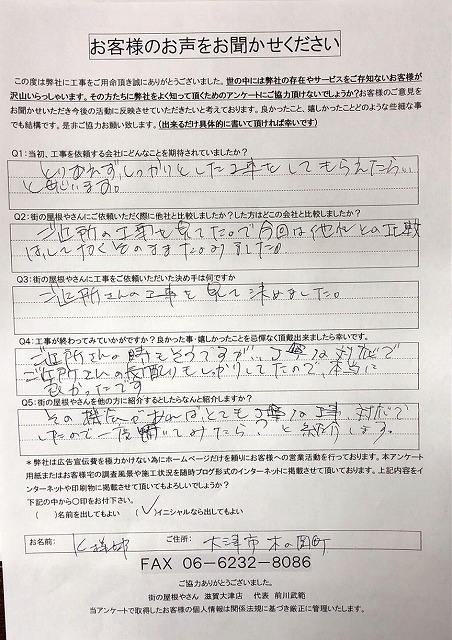 お客様のお声をお聞かせください
この度は弊社に工事をご用命頂き誠にありがとうございました。世の中には弊社の存在やサービスをご存知ないお客様が
沢山いらっしゃいます。その方たちに弊社をよく知って頂くためのアンケートにご協力頂けないでしょうか?お客様のご意見を
お聞かせいただき今後の活動に反映させていただきたいと考えております。良かったこと、嬉しかったことどのような些細な事
でも結構です。是非ご協力お願い致します。(出来るだけ具体的に書いて頂ければ幸いです)
Q1:当初、工事を依頼する会社にどんなことを期待されていましたか?
とりあえず、しっかりとした工事をしてもらえたらいい
と思います。
Q2:街の屋根やさんにご依頼いただく際に他社と比較しましたか?した方はどこの会社と比較しましたか?
ご近所の工事を見てたので今回は他社との比較
はしてなくそのままたのみました。
Q3:街の屋根やさんに工事をご依頼いただいた決め手は何ですか
ご近所さんの工事を見て決めました。
Q4:工事が終わってみていかがですか?良かった事・嬉しかったことを忌憚なく頂戴出来ましたら幸いです。
ご近所さんの時もそうですが、丁寧な対応で
ご近所さんの気配りもしっかりしてたので、本当に
良かったです
Q5:街の屋根やさんを他の方に紹介するとしたらなんと紹介しますか?
その機会があればとても丁寧な工事、対応で
したので一度聞いてみたら?と紹介します。
*弊社は広告宣伝費を極力かけない為にホームページだけを頼りにお客様への営業活動を行っております。本アンケート
用紙またはお客様宅の調査風景や施工状況を随時ブログ形式のインターネットに掲載させて頂いております。上記内容をイ
ンターネットや印刷物に掲載させて頂いてもよろしいでしょうか?
下記の中から○印をお付下さい。
( )名前を出してもよい (✓)イニシャルなら出してもよい
お名前: K様邸 ご住所: 大津市 木の岡町
FAX 06-6232-8086
ご協力ありがとうございました。
街の屋根やさん 滋賀大津店 代表 前川武範
当アンケートで取得したお客様の個人情報は関係法規に基づき厳正に管理いたします。